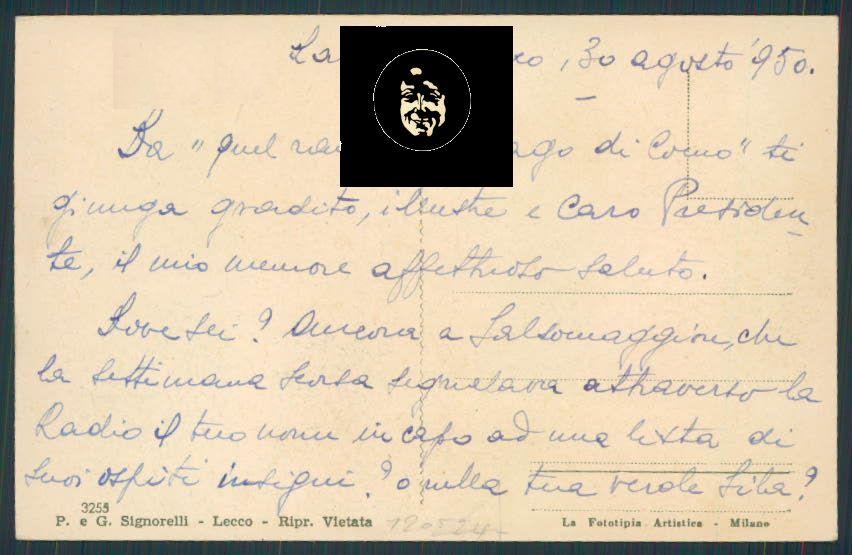 30 agosto '950.
Da "quel ago di Como" ti
giunga gradito, illustre e caro Presiden-
te, il mio memore affettuoso saluto.
Dove sei? Ancora a Salsomaggiore, che
la settimana scorsa segnalava attraverso la
Radio il tuo nome in capo ad una lista di
suoi ospiti insigni? o nella tua verde Sila?
3255
P. e G. Signorelli - Lecco - Ripr. Vietata
La Fototipia Artistica - Milano